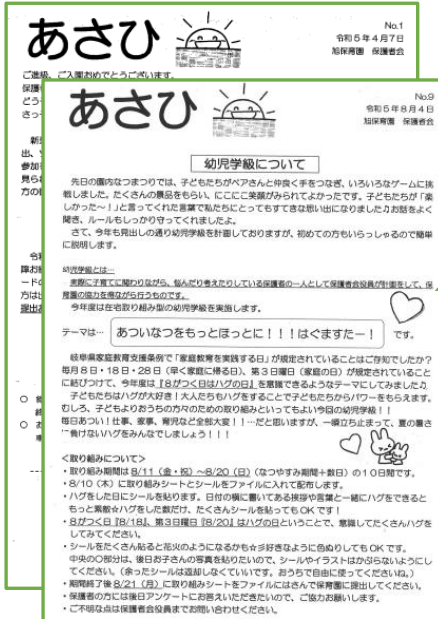 あさひ
No.1
令和5年4月7日
旭保育園 保護者会
ご進級、ご入園おめでとうございます。
あさひ
No.9
令和5年8月4日
旭保育園 保護者会
幼児学級について
先日の園内なつまつりでは、子どもたちがペアさんと仲良く手をつなぎ、いろいろなゲームに挑
戦しました。たくさんの景品をもらい、にこにこ笑顔がみられてよかったです。子どもたちが「楽
しかった~！」と言ってくれた言葉で私たちにとってもすてきな思い出になりました♫お話をよく
聞き、ルールもしっかり守ってくれましたよ。
さて、今年も見出しの通り幼児学級を計画しておりますが、初めての方もいらっしゃるので簡単
に説明します。
幼児学級とは…
実際に子育てに関わりながら、悩んだり考えたりしている保護者の一人として保護者会役員が計画をして、保
育園の協力を得ながら行うものです。
今年度は在宅取り組み型の幼児学級を実施します。
テーマは… あついなつをもっとほっとに！！！はぐますたー！ です。
岐阜県家庭教育支援条例で「家庭教育を実践する日」が規定されていることはご存知でしたか？
毎月8日・18日・28日（早く家庭に帰る日）、第3日曜日（家庭の日）が規定されていること
に結びつけて、今年度は『8がつく日はハグの日』を意識できるようなテーマにしてみました♫
子どもたちはハグが大好き！大人たちもハグをすることで子どもたちからパワーをもらえます。
むしろ、子どもよりおうちの方々のための取り組みといってもよい今回の幼児学級！！
毎日あつい！仕事、家事、育児など全部大変！！…だと思いますが、一頑立ち止まって、夏の暑さ
に負けないハグをみんなでしましょう！！！
＜取り組みについて＞
・取り組み期間は8/11（金・祝）～8/20（日）（なつやすみ期間＋数日）の10日間です。
・8/10（木）に取り組みシートとシールをファイルに入れて配布します。
・ハグをした日にシールを貼ります。日付の横に書いてある挨拶や言葉と一緒にハグをできると
もっと素敵☆ハグをした数だけ、たくさんシールを貼ってもOKです！
・8がつく日『8/18』、第3日曜日『8/20』はハグの日ということで、意識してたくさんハグを
してみてください。
・シールをたくさん貼ると花火のようになるかも☆彡好きなように色ぬりしてもOKです。
中央の〇部分は、後日お子さんの写真を貼りたいので、シールやイラストはかぶらないようにし
てください。（余ったシールは返却しなくていいです。おうちで自由に使ってくださいね。）
・期間終了後8/21（月）に取り組みシートをファイルにはさんで保育園に提出してください。
・保護者の方には後日アンケートにお答えいただきたいので、ご協力お願いします。
・ご不明な点は保護者会役員までお問い合わせください。